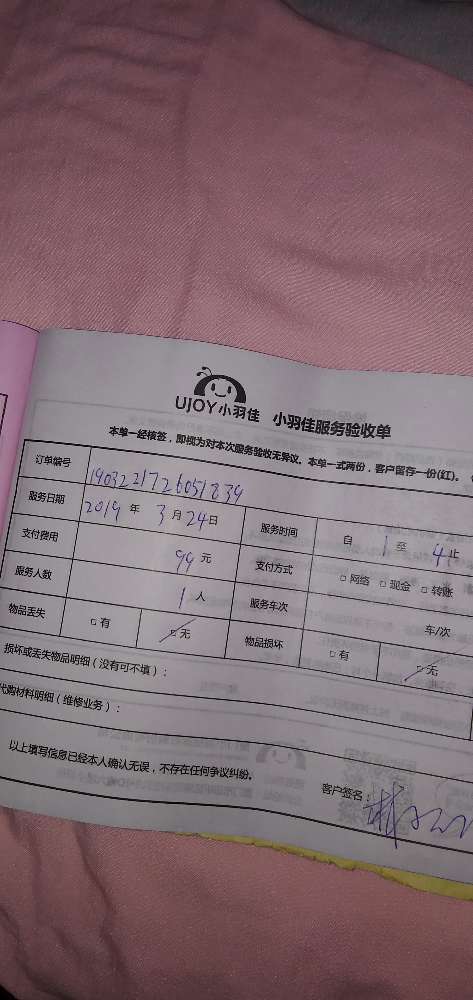 UJOY小羽佳 小羽佳服务验收单
本单一经核签，即视为对本次服务验收无异议。本单一式两份，客户留存一份(红)。
订单编号 1903221726051839
服务日期 2019 年 3 月 24 日 服务时间 自 1 至 4 止
支付费用 99 元 支付方式 □ 网络 □ 现金 □ 转账
服务人数 1 人 服务车次 车/次
物品丢失 □ 有 □ 无 物品损坏 □ 有 □ 无
损坏或丢失物品明细（没有可不填）：
代购材料明细（维修业务）：
以上填写信息已经本人确认无误，不存在任何争议纠纷。
客户签名：